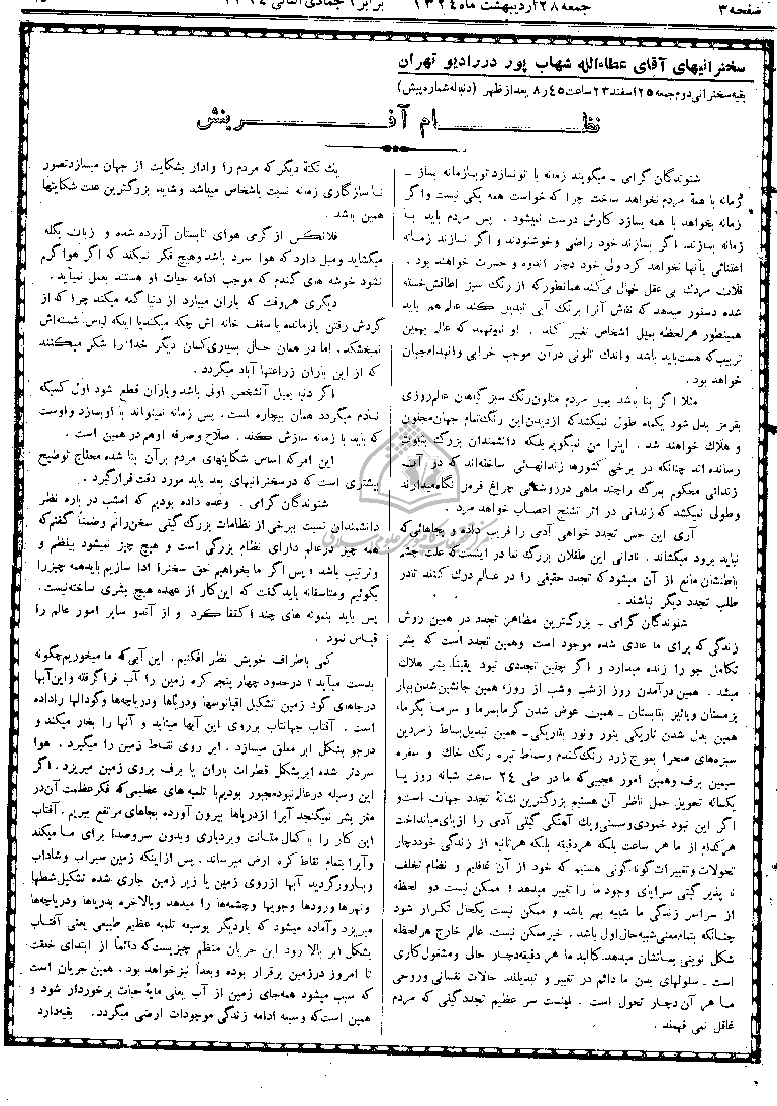 صفحه ۳
جمعه ۲۸ اردیبهشت ماه ۱۳۲۴
برابر ۶ جمادی الثانی
سخنرانیهای آقای عطاءالله شهاب پور در رادیو تهران
بقیه سخنرانی دوم جمعه ۲۵ اسفند ۲۳ ساعت ۴۵ر۸ بعد از ظهر (دنباله شماره پیش)
نظام آفرینش
شنوندگان گرامی - میگویند زمانه با تو نسازد تو بازمانه بساز -
زمانه با همهٔ مردم نخواهد ساخت چرا که خواست همه یکی نیست و اگر
زمانه بخواهد با همه بسازد کارش درست نمیشود . پس مردم باید با
زمانه سازند. اگر بسازند خود راضی و خوشنودند و اگر نسازند زمانه
اعتنائی بآنها نخواهد کرد ولی خود دچار اندوه و حسرت خواهند بود .
فلان مردك بی عقل خیال می‌کند همانطور که از رنگ سبز اطاقش خسته
شده دستور میدهد که نقاش آنرا برنگ آبی تبدیل کند عالم هم باید
همینطور هر لحظه بمیل اشخاص تغییر کند . او نمیفهمد که عالم بهمین
ترتیب که هست باید باشد و اندك تلونی در آن موجب خرابی و انهدام جهان
خواهد بود .
مثلا اگر بنا باشد بمیل مردم متلون رنگ سبز گیاهان عالم روزی
بقرمز بدل شود یکماه طول نمیکشد که از دیدن این رنگ تمام جهان مجنون
و هلاك خواهند شد . اینرا من نمیگویم بلکه دانشمندان بزرگ بثبوت
رسانده اند چنانکه در برخی کشورها زندانهائی ساخته‌اند که در آنها
زندانی محکوم بمرگ را چند ماهی در روشنائی چراغ قرمز نگاه میدارند
و طولی نمیکشد که زندانی در اثر تشنج اعصاب خواهد مرد .
آری این حس تجدد خواهی آدمی را فریب داده و بجاهائی که
نباید برود میکشاند . نادانی این طفلان بزرگ نما در اینست که علت چشم
باطنشان مانع از آن میشود که تجدد حقیقی را در عالم درك کنند تا در
طلب تجدد دیگر نباشند .
شنوندگان گرامی - بزرگترین مظاهر تجدد در همین روش
زندگی که برای ما عادی شده موجود است وهمین تجدد است که بشر
تکامل جو را زنده میدارد و اگر چنین تجددی نبود یقیناً بشر هلاك
میشد . همین درآمدن روز از شب وشب از روز، همین جانشین شدن بهار
بزمستان و پائیز بتابستان - همین عوض شدن گرما بسرما و سرما بگرما،
همین بدل شدن تاریکی بنور ونور بتاریکی - همین تبدیل بساط زمردین
سبزه‌های صحرا بموج زرد رنگ گندم و بساط تیره رنگ خاك و سفره
سیمین برف وهمین امور عجیبی که ما در طی ۲۴ ساعت شبانه روز یا
یکساله تحویل حمل ناظر آن هستیم بزرگترین نشانهٔ تجدد جهانست و
اگر این نبود خمودی وسستی ویك آهنگی گیتی آدمی را از پای میانداخت
هر کدام از ما هر ساعت بلکه هر دقیقه بلکه هر ثانیه از زندگی خود دچار
تحولات و تغییرات گوناگونی هستیم که خود از آن غافلیم و نظام تخلف
نا پذیر گیتی سراپای وجود ما را تغییر میدهد ؛ ممکن نیست دو لحظه
از سراسر زندگی ما شبیه بهم باشد و ممکن نیست یکحال تکرار شود
چنانکه بتمام معنی شبیه حال اول باشد . خیر ممکن نیست. عالم خارج هر لحظه
شکل نوینی بما نشان میدهد. کالبد ما هر دقیقه دچار حالی و مشغول کاری
است - سلولهای بدن ما دائم در تغییر و تبدیلند حالات نفسانی و روحی
ما هر آن دچار تحول است . اینست سر عظیم تجدد گیتی که مردم
غافل نمی فهمند .
یك نکتهٔ دیگر که مردم را وادار بشکایت از جهان میسازد تصور
ناسازگاری زمانه نسبت باشخاص میباشد و شاید بزرگترین علت شکایتها
همین باشد .
فلانکس از گرمی هوای تابستان آزرده شده و زبان بگله
میگشاید ومیل دارد که هوا سرد باشد وهیچ فکر نمیکند که اگر هوا گرم
نشود خوشه های گندم که موجب ادامه حیات او هستند بعمل نمیآید .
دیگری هر وقت که باران میبارد از دنیا گله میکند چرا که از
گردش رفتن بازمانده یا سقف خانه اش چکه میکند یا اینکه لباس شسته‌اش
نمیخشکد . اما در همان حال بسیاری کسان دیگر خدا را شکر میکنند
که از این باران زراعتها آباد میگردد .
اگر دنیا بمیل آنشخص اولی باشد و باران قطع شود اول کسیکه
نادم میگردد همان بیچاره است . پس زمانه نمیتواند با او بسازد واوست
که باید با زمانه سازش کند . صلاح و صرفه او هم در همین است .
این امر که اساس شکایتهای مردم بر آن بنا شده محتاج توضیح
بیشتری است که در سخنرانیهای بعد باید مورد دقت قرار گیرد .
شنوندگان گرامی . وعده داده بودیم که امشب در باره نظر
دانشمندان نسبت ببرخی از نظامات بزرگ گیتی سخن رانم وضمناً گفتم که
همه چیز در عالم دارای نظام بزرگی است و هیچ چیز نمیشود بینظم و
ترتیب باشد ؛ پس اگر ما بخواهیم حق سخن را ادا سازیم باید همه چیز را
بگوئیم ومتاسفانه باید گفت که این کار از عهده هیچ بشری ساخته نیست.
پس باید بنمونه های چند اکتفا کرد و از آندو سایر امور عالم را
قیاس نمود .
کمی باطراف خویش نظر افکنیم . این آبی که ما میخوریم چگونه
بدست میآید ؟ در حدود چهار پنجم کره زمین را آب فرا گرفته واین آبها
در جاهای گود زمین تشکیل اقیانوسها ودریاها ودریاچه‌ها وگودالها را داده
است . آفتاب جهانتاب بر روی این آبها میتابد و آنها را بخار میکند و
در جو بشکل ابر معلق میسازد . ابر روی نقاط زمین را میگیرد . هوا
سردتر شده ابر بشکل قطرات باران یا برف بروی زمین میریزد . اگر
این وسیله در عالم نبود مجبور بودیم با تلمبه های عظیمی که فکر عظمت آن در
مغز بشر نمیگنجد آبرا از دریاها بیرون آورده بجاهای مرتفع ببریم . آفتاب
این کار را با کمال متانت وبردباری وبدون سر وصدا برای ما میکند
وآبرا بتمام نقاط کره ارض میرساند . پس از اینکه زمین سیراب و شاداب
و بارور گردید آبها از روی زمین یا زیر زمین جاری شده تشکیل شطها
و نهرها ورودها وجویها وچشمه‌ها را میدهد وبالاخره بدریاها ودریاچه‌ها
میریزد وآماده میشود که بار دیگر بوسیله تلمبه عظیم طبیعی یعنی آفتاب
بشکل ابر بالا رود این جریان منظم چیزیست که دائماً از ابتدای خلقت
تا امروز در زمین برقرار بوده و بعداً نیز خواهد بود . همین جریان است
که سبب میشود همه جای زمین از آب یعنی مایهٔ حیات برخوردار شود و
همین است که وسیله ادامه زندگی موجودات ارضی میگردد . بقیه دارد